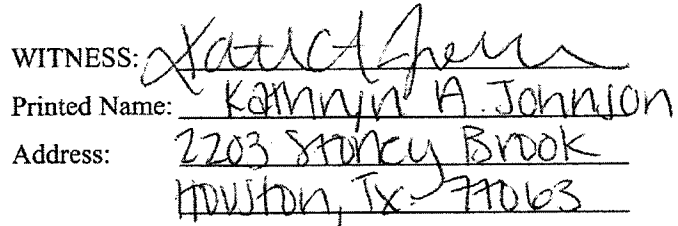 WITNESS:
Printed Name: Kathryn A. Johnson
Address: 2203 Stoney Brook
Houston, Tx 77063